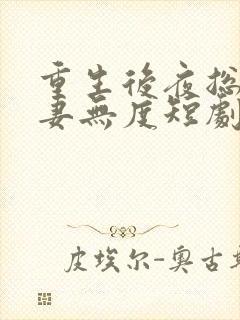 重生後夜總
妻無度短劇
皮埃尔-奥古